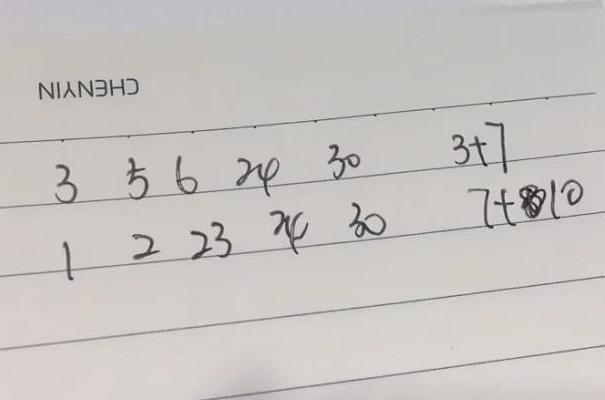 CHENYIN
3 5 6 24 30 3+7
1 2 23 24 30 7+10